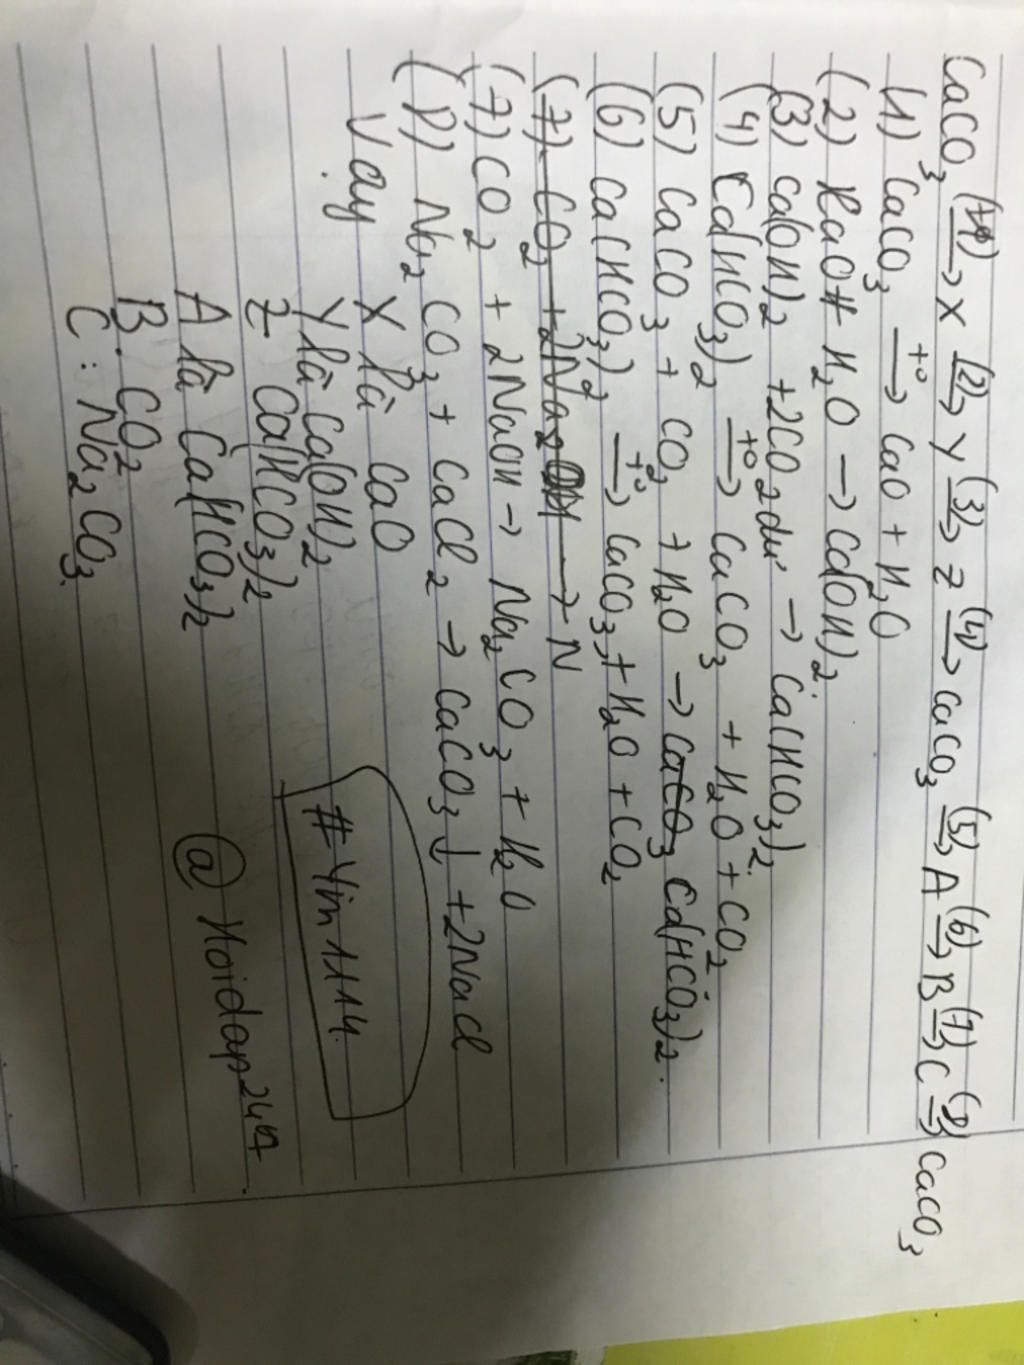 CaCO3 (1)→ X (2)→ Y (3)→ Z (4)→ CaCO3 (5)→ A (6)→ B (7)→ C (8)→ CaCO3
(1) CaCO3 t°→ CaO + H2O
(2) CaO + H2O → Ca(OH)2.
(3) Ca(OH)2 + 2CO2 dư → Ca(HCO3)2.
(4) Ca(HCO3)2 t°→ CaCO3 + H2O + CO2
(5) CaCO3 + CO2 + H2O → CaCO3 Ca(HCO3)2.
(6) Ca(HCO3)2 t°→ CaCO3 + H2O + CO2
(7) CO2 + 2Na2OH → N
(7) CO2 + 2NaOH → Na2CO3 + H2O
(8) Na2CO3 + CaCl2 → CaCO3↓ + 2NaCl
Vậy X là CaO
Y là Ca(OH)2
Z Ca(HCO3)2
A là Ca(HCO3)2
B. CO2
C: Na2CO3.
#Yin1114.
@Hoidap247.